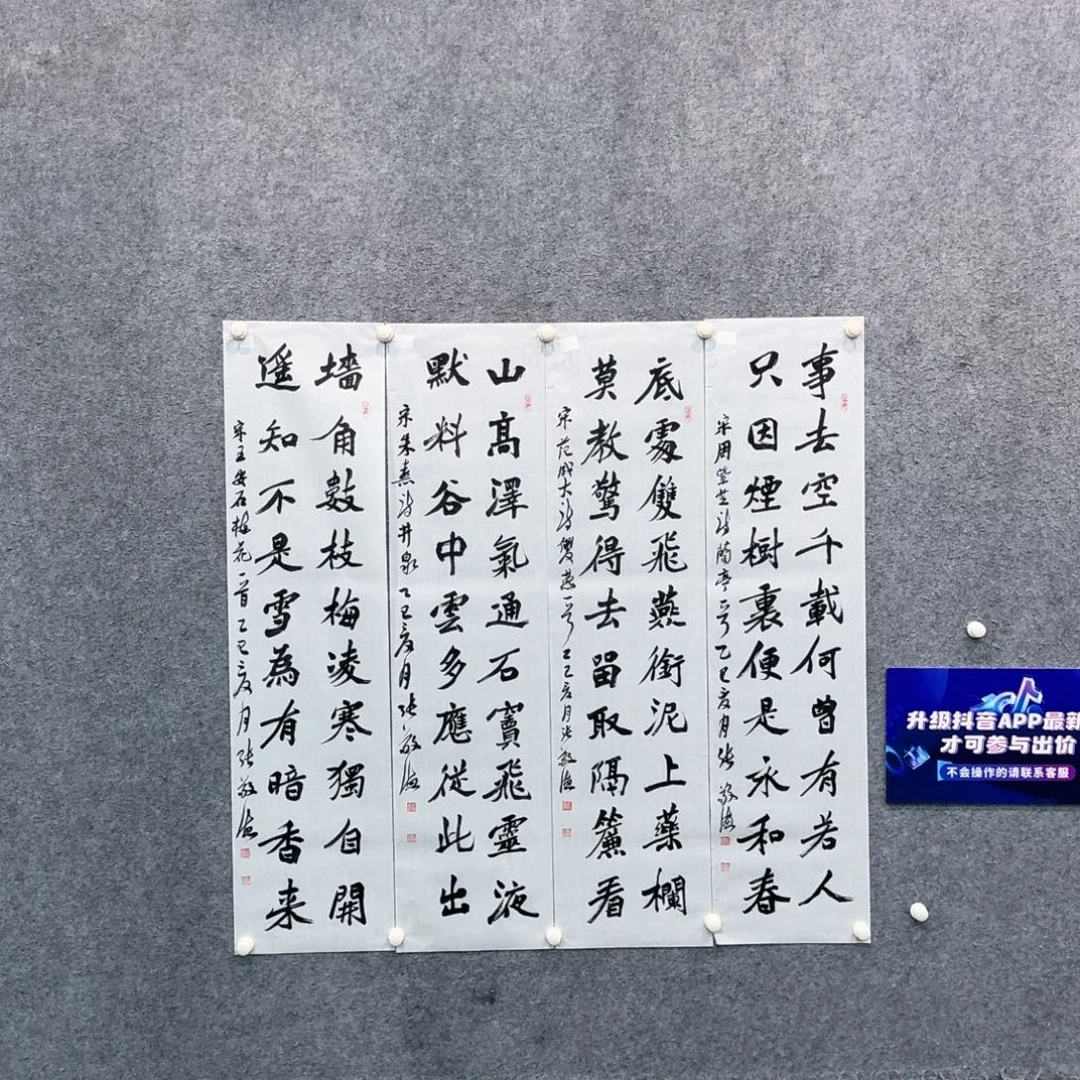 事去空千載何曾有若人
只因煙樹裏便是永和春
宋周紫芝詩蘭亭一首乙巳亥月張敬德
底處雙飛燕銜泥上藥欄
莫教驚得去留取隔簾看
宋范成大詩雙燕一首乙巳亥月張敬德
山高澤氣通石竇飛靈液
默料谷中雲多應從此出
宋朱熹詩井泉乙巳亥月張敬德
墻角數枝梅凌寒獨自開
遥知不是雪為有暗香来
宋王安石梅花一首乙巳亥月張敬德
升级抖音APP最新
才可参与出价
不会操作的请联系客服